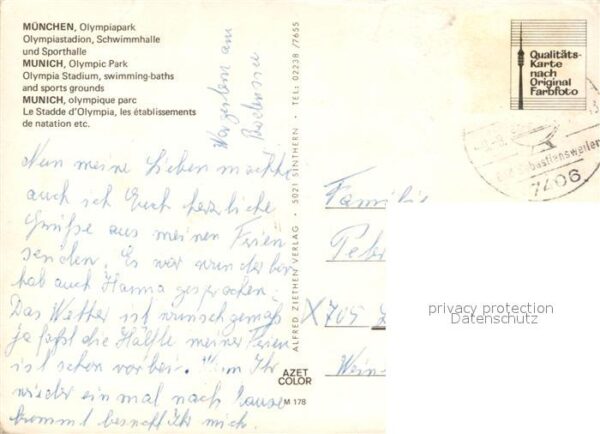 MÜNCHEN, Olympiapark
Olympiastadion, Schwimmhalle
und Sporthalle
MUNICH, Olympic Park
Olympia Stadium, swimming-baths
and sports grounds
MUNICH, olympique parc
Le Stadde d'Olympia, les établissements
de natation etc.
am
Bodensee
Nun meine Lieben möchte
auch ich Euch herzliche
Grüße aus meinen Ferien
senden. Es war wunderbar
hab auch Hanna gesprochen.
Das Wetter ist wunschgemäß
ja fast die Hälfte meiner Ferien
ist schon vorbei. Wenn Ihr
wieder einmal nach Hause
kommt besucht Ihr mich.
ALFRED ZIETHEN VERLAG · 5021 SINTHERN · TEL: 02238 /7655
AZET
COLOR
M 178
Qualitäts-
Karte
nach
Original
Farbfoto
Bad Sebastiansweiler
7406
Familie
Peter
X 705
Wein-
privacy protection
Datenschutz